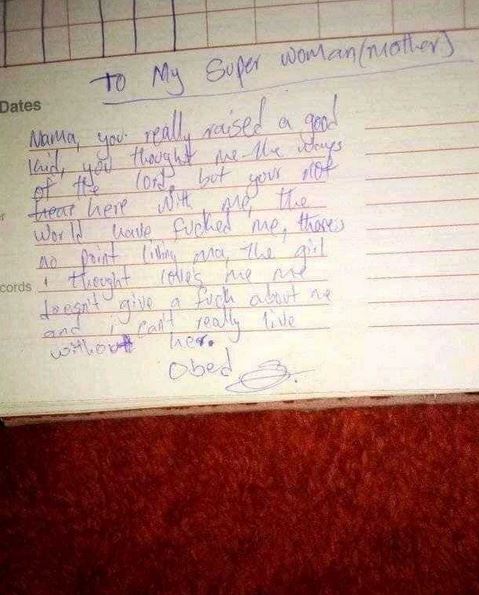 To My Super woman(mother)
Dates
Mama, you really raised a good
kid, you thought me the ways
of the lord, but your not
hear here with me, the
world have fucked me, theres
no point living ma, the girl
i thought loves me me
doesn't give a fuck about me
and i can't really live
without her.
cords
Obed